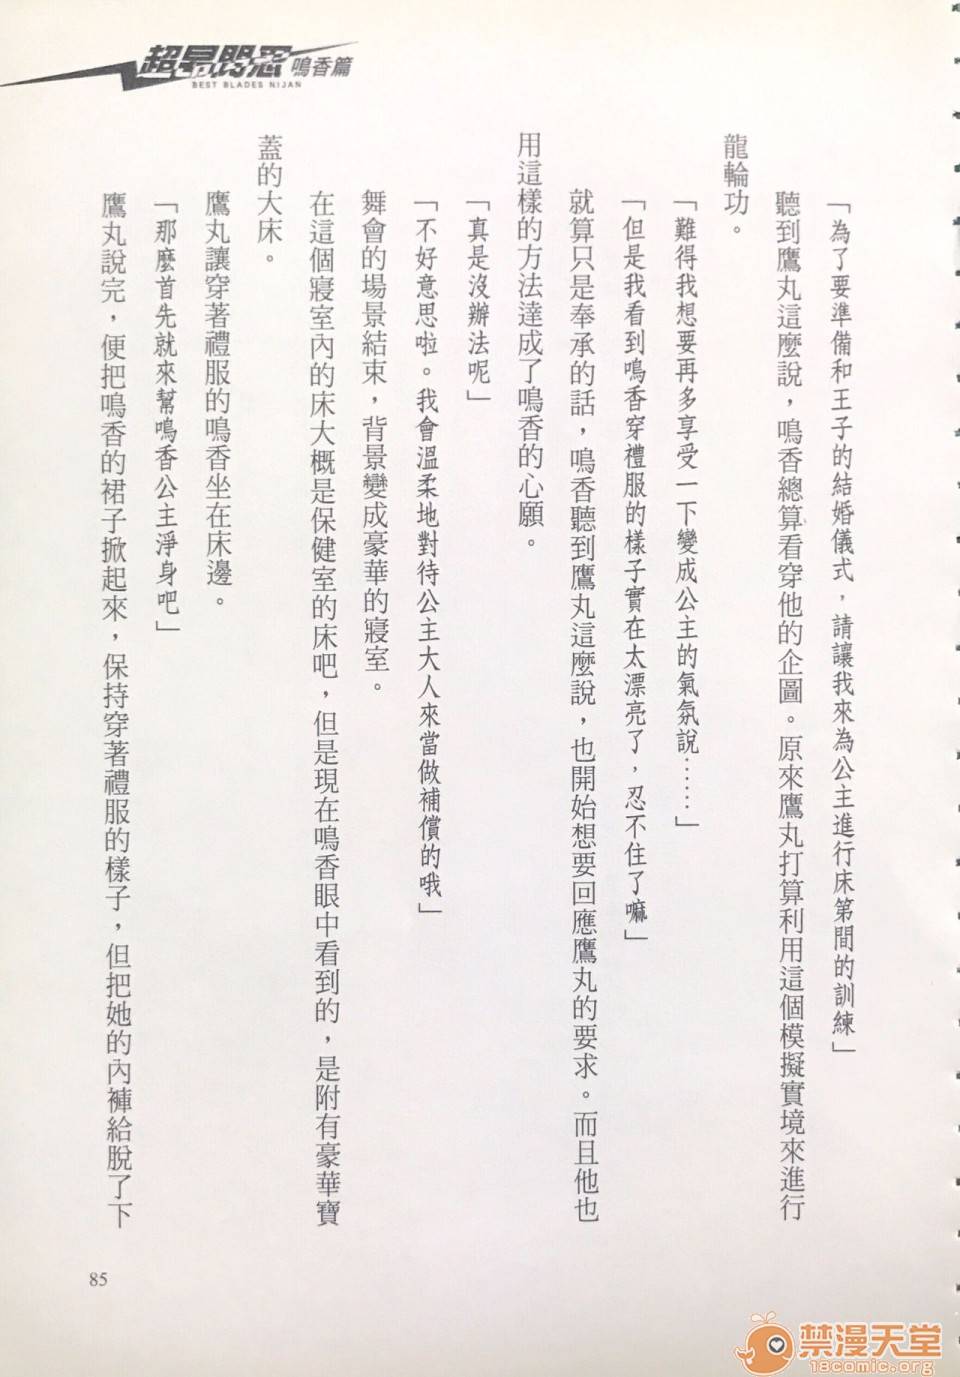 超昂閃忍 鳴香篇
BEST BLADES NIJAN
「為了要準備和王子的結婚儀式，請讓我來為公主進行床第間的訓練」
聽到鷹丸這麼說，鳴香總算看穿他的企圖。原來鷹丸打算利用這個模擬實境來進行
龍輪功。
「難得我想要再多享受一下變成公主的氣氛說……」
「但是我看到鳴香穿禮服的樣子實在太漂亮了，忍不住了嘛」
就算只是奉承的話，鳴香聽到鷹丸這麼說，也開始想要回應鷹丸的要求。而且他也
用這樣的方法達成了鳴香的心願。
「真是沒辦法呢」
「不好意思啦。我會溫柔地對待公主大人來當做補償的哦」
舞會的場景結束，背景變成豪華的寢室。
在這個寢室內的床大概是保健室的床吧，但是現在鳴香眼中看到的，是附有豪華寶
蓋的大床。
鷹丸讓穿著禮服的鳴香坐在床邊。
「那麼首先就來幫鳴香公主淨身吧」
鷹丸說完，便把鳴香的裙子掀起來，保持穿著禮服的樣子，但把她的內褲給脫了下
85
禁漫天堂
18comic.org